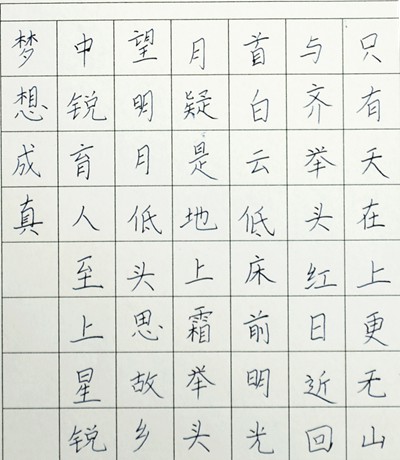 只有天在上更无山
与齐举头红日近回
首白云低床前明光
月疑是地上霜举头
望明月低头思故乡
中锐育人至上星锐
梦想成真